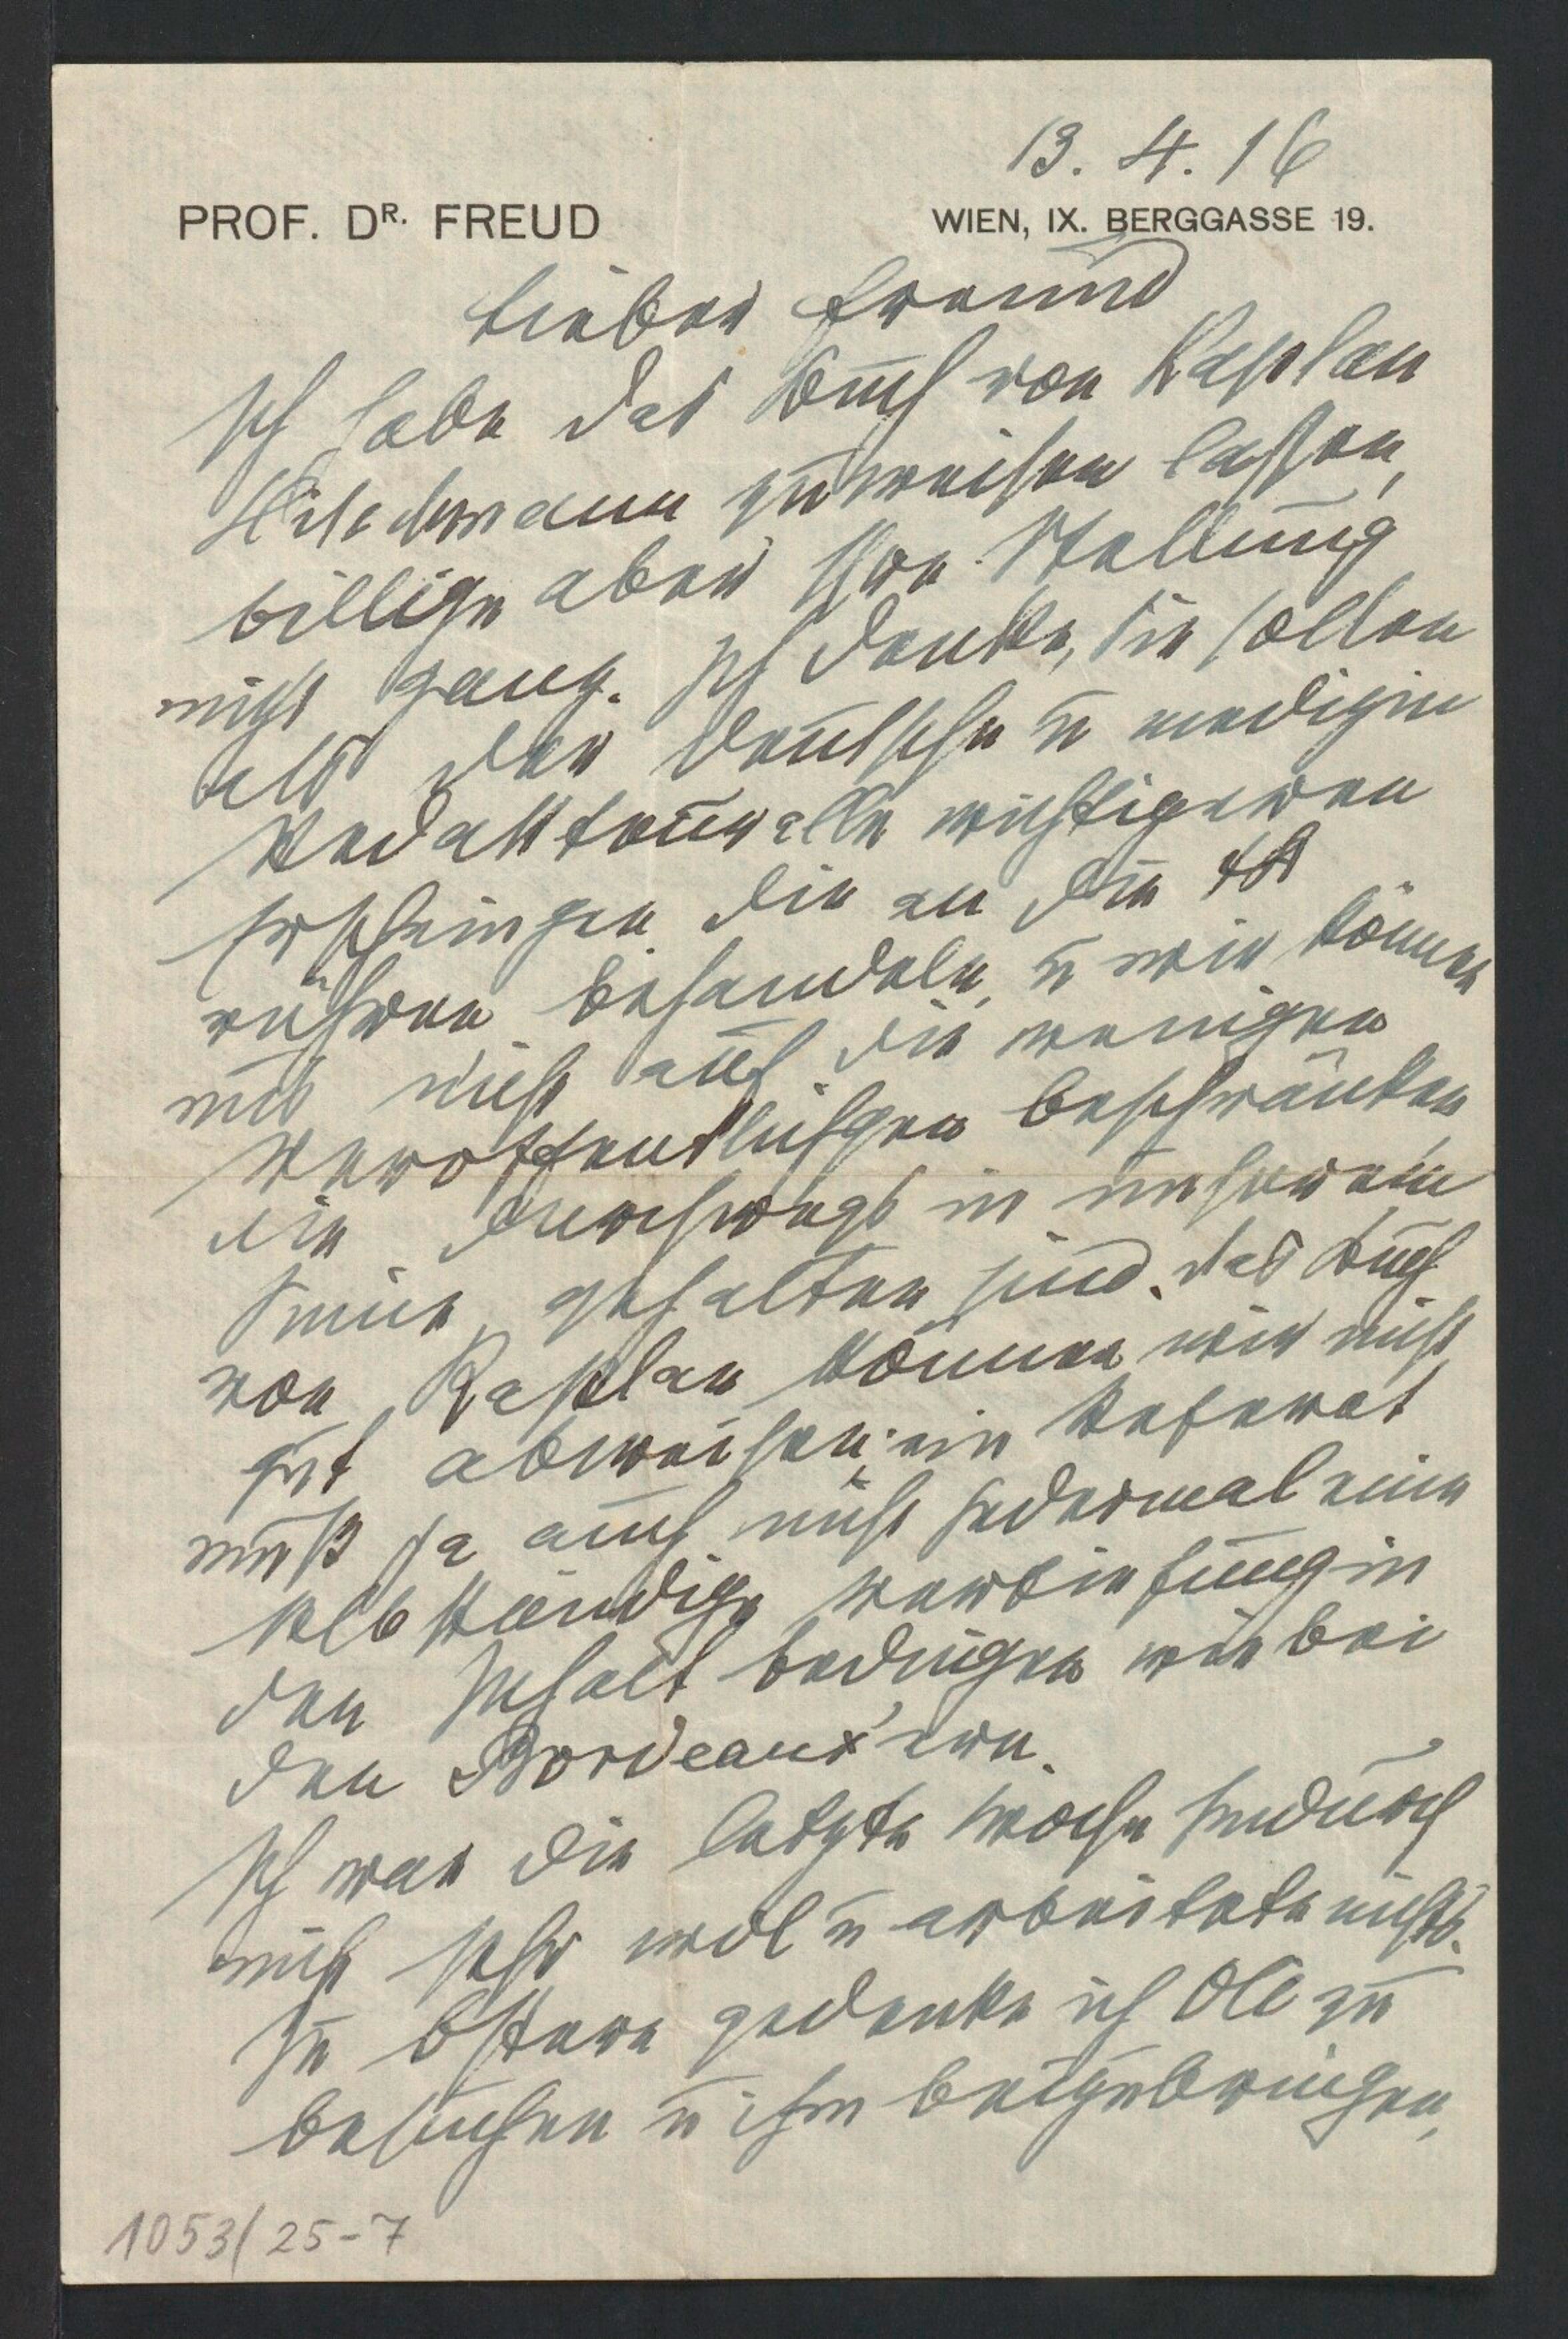 13. 4. 16
PROF. DR. FREUD
WIEN, IX. BERGGASSE 19.
Lieber Freund
Ich habe das Buch von Kaplan
Hitschmann zuweisen lassen,
billige aber Ihre Stellung
nicht ganz. Ich denke, Sie sollen
als der deutsche u medizin
Redakteur alle wichtigeren
Erscheingen die an die ψA
rühren behandeln, u wir können
uns nicht auf die wenigen
Veröffentlichgen beschränken,
die durchwegs in unserem
Sinne gehalten sind. Das Buch
von Kaplan können wir nicht
gut abweisen; ein Referat
muß ja auch nicht jedesmal eine
selbständige Vertiefung in
den Inhalt bedingen wie bei
den Bordeaux'ern.
Ich war die letzte Woche hindurch
nicht sehr wol u arbeitete nichts.
Zu Ostern gedenke ich Oli zu
besuchen u ihm beizubringen,
1053/25-7